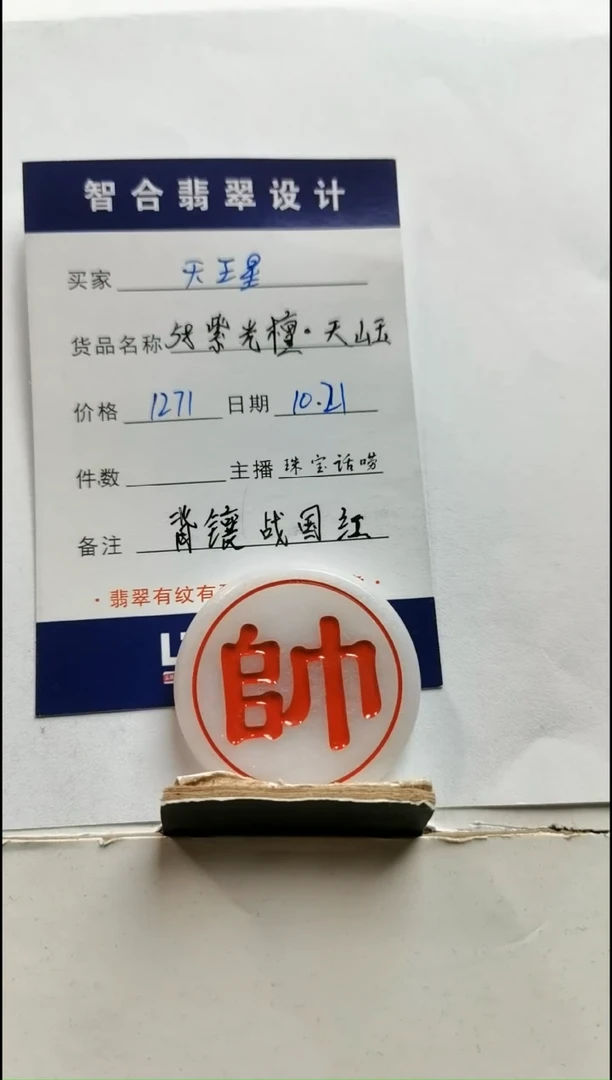 智合翡翠设计
买家 天王星
货品名称 58紫光檀·天山玉
价格 1271 日期 10.21
件数 主播 珠宝话唠
备注 背镶战国红
·翡翠有纹有
帥